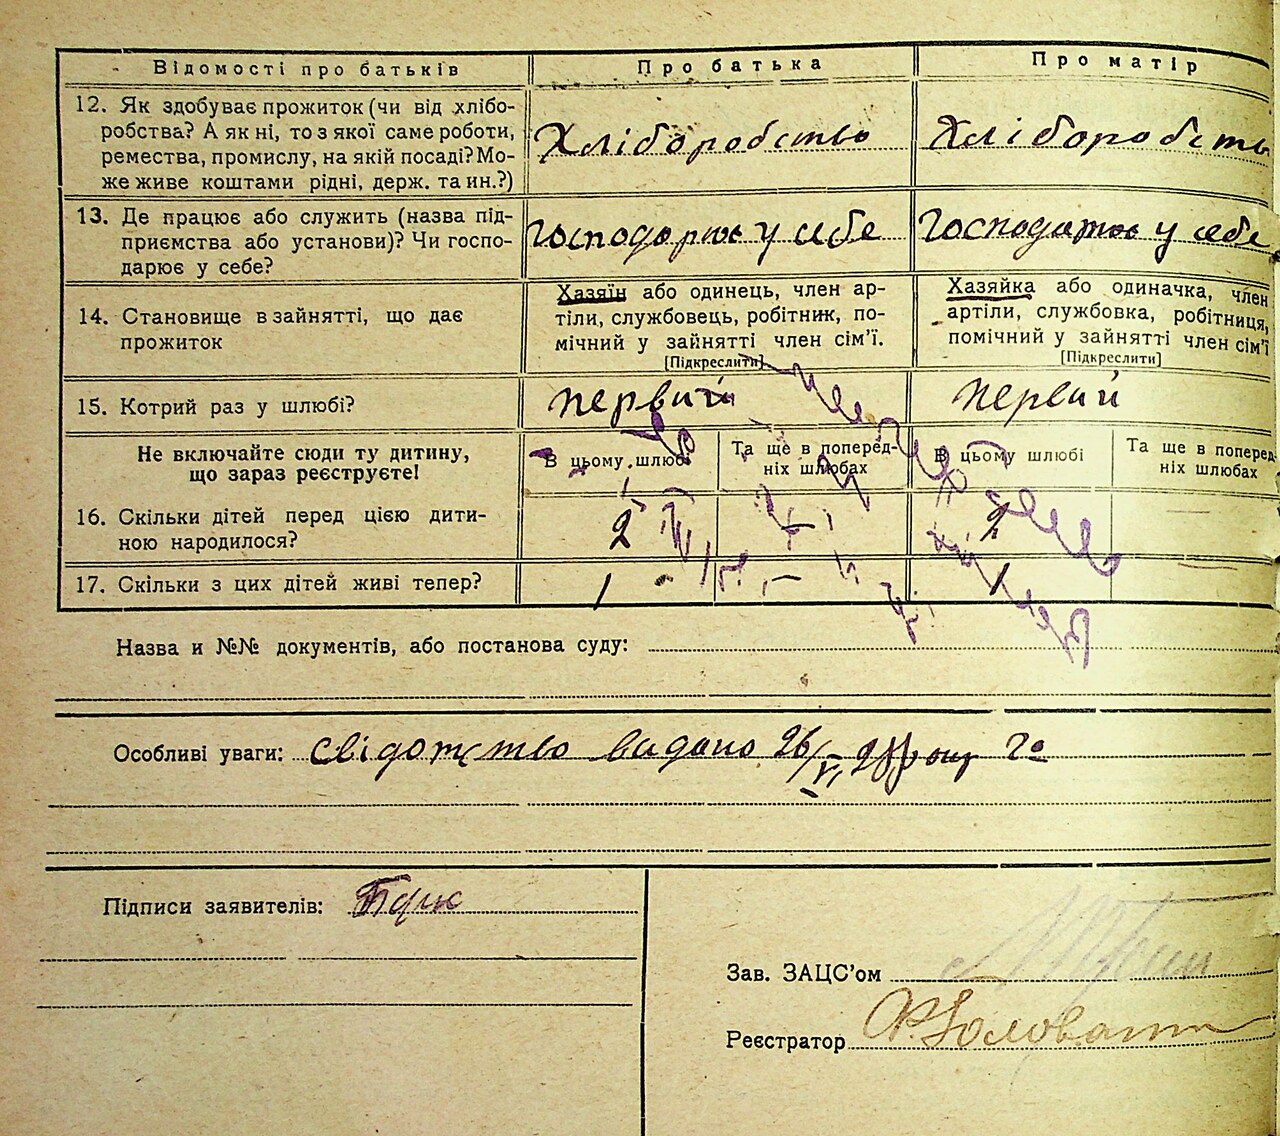 Відомості про батьків Про батька Про матір
12. Як здобуває прожиток (чи від хлібо-
робства? А як ні, то з якої саме роботи,
ремества, промислу, на якій посаді? Мо-
же живе коштами рідні, держ. та ин.?)
Хліборобство Хліборобсть
13. Де працює або служить (назва під-
приємства або установи)? Чи госпо-
дарює у себе?
Господарює у себе у себе
14. Становище в зайнятті, що дає
прожиток
Хазяїн або одинець, член ар-
тілі, службовець, робітник, по-
мічний у зайнятті член сім'ї.
[Підкреслити]
Хазяйка або одиначка, член
артілі, службовка, робітниця,
помічний у зайнятті член сім'ї
[Підкреслити]
15. Котрий раз у шлюбі? первий первий
Не включайте сюди ту дитину,
що зараз реєструєте!
В цьому шлюбі
Та ще в поперед-
ніх шлюбах
В цьому шлюбі
Та ще в поперед-
ніх шлюбах
16. Скільки дітей перед цією дити-
ною народилося?
2 — 2 —
17. Скільки з цих дітей живі тепер? 1 — 1 —
Назва и №№ документів, або постанова суду:
Особливі уваги: свідотство видано 26/
Підписи заявителів:
Зав. ЗАЦС'ом
Реєстратор